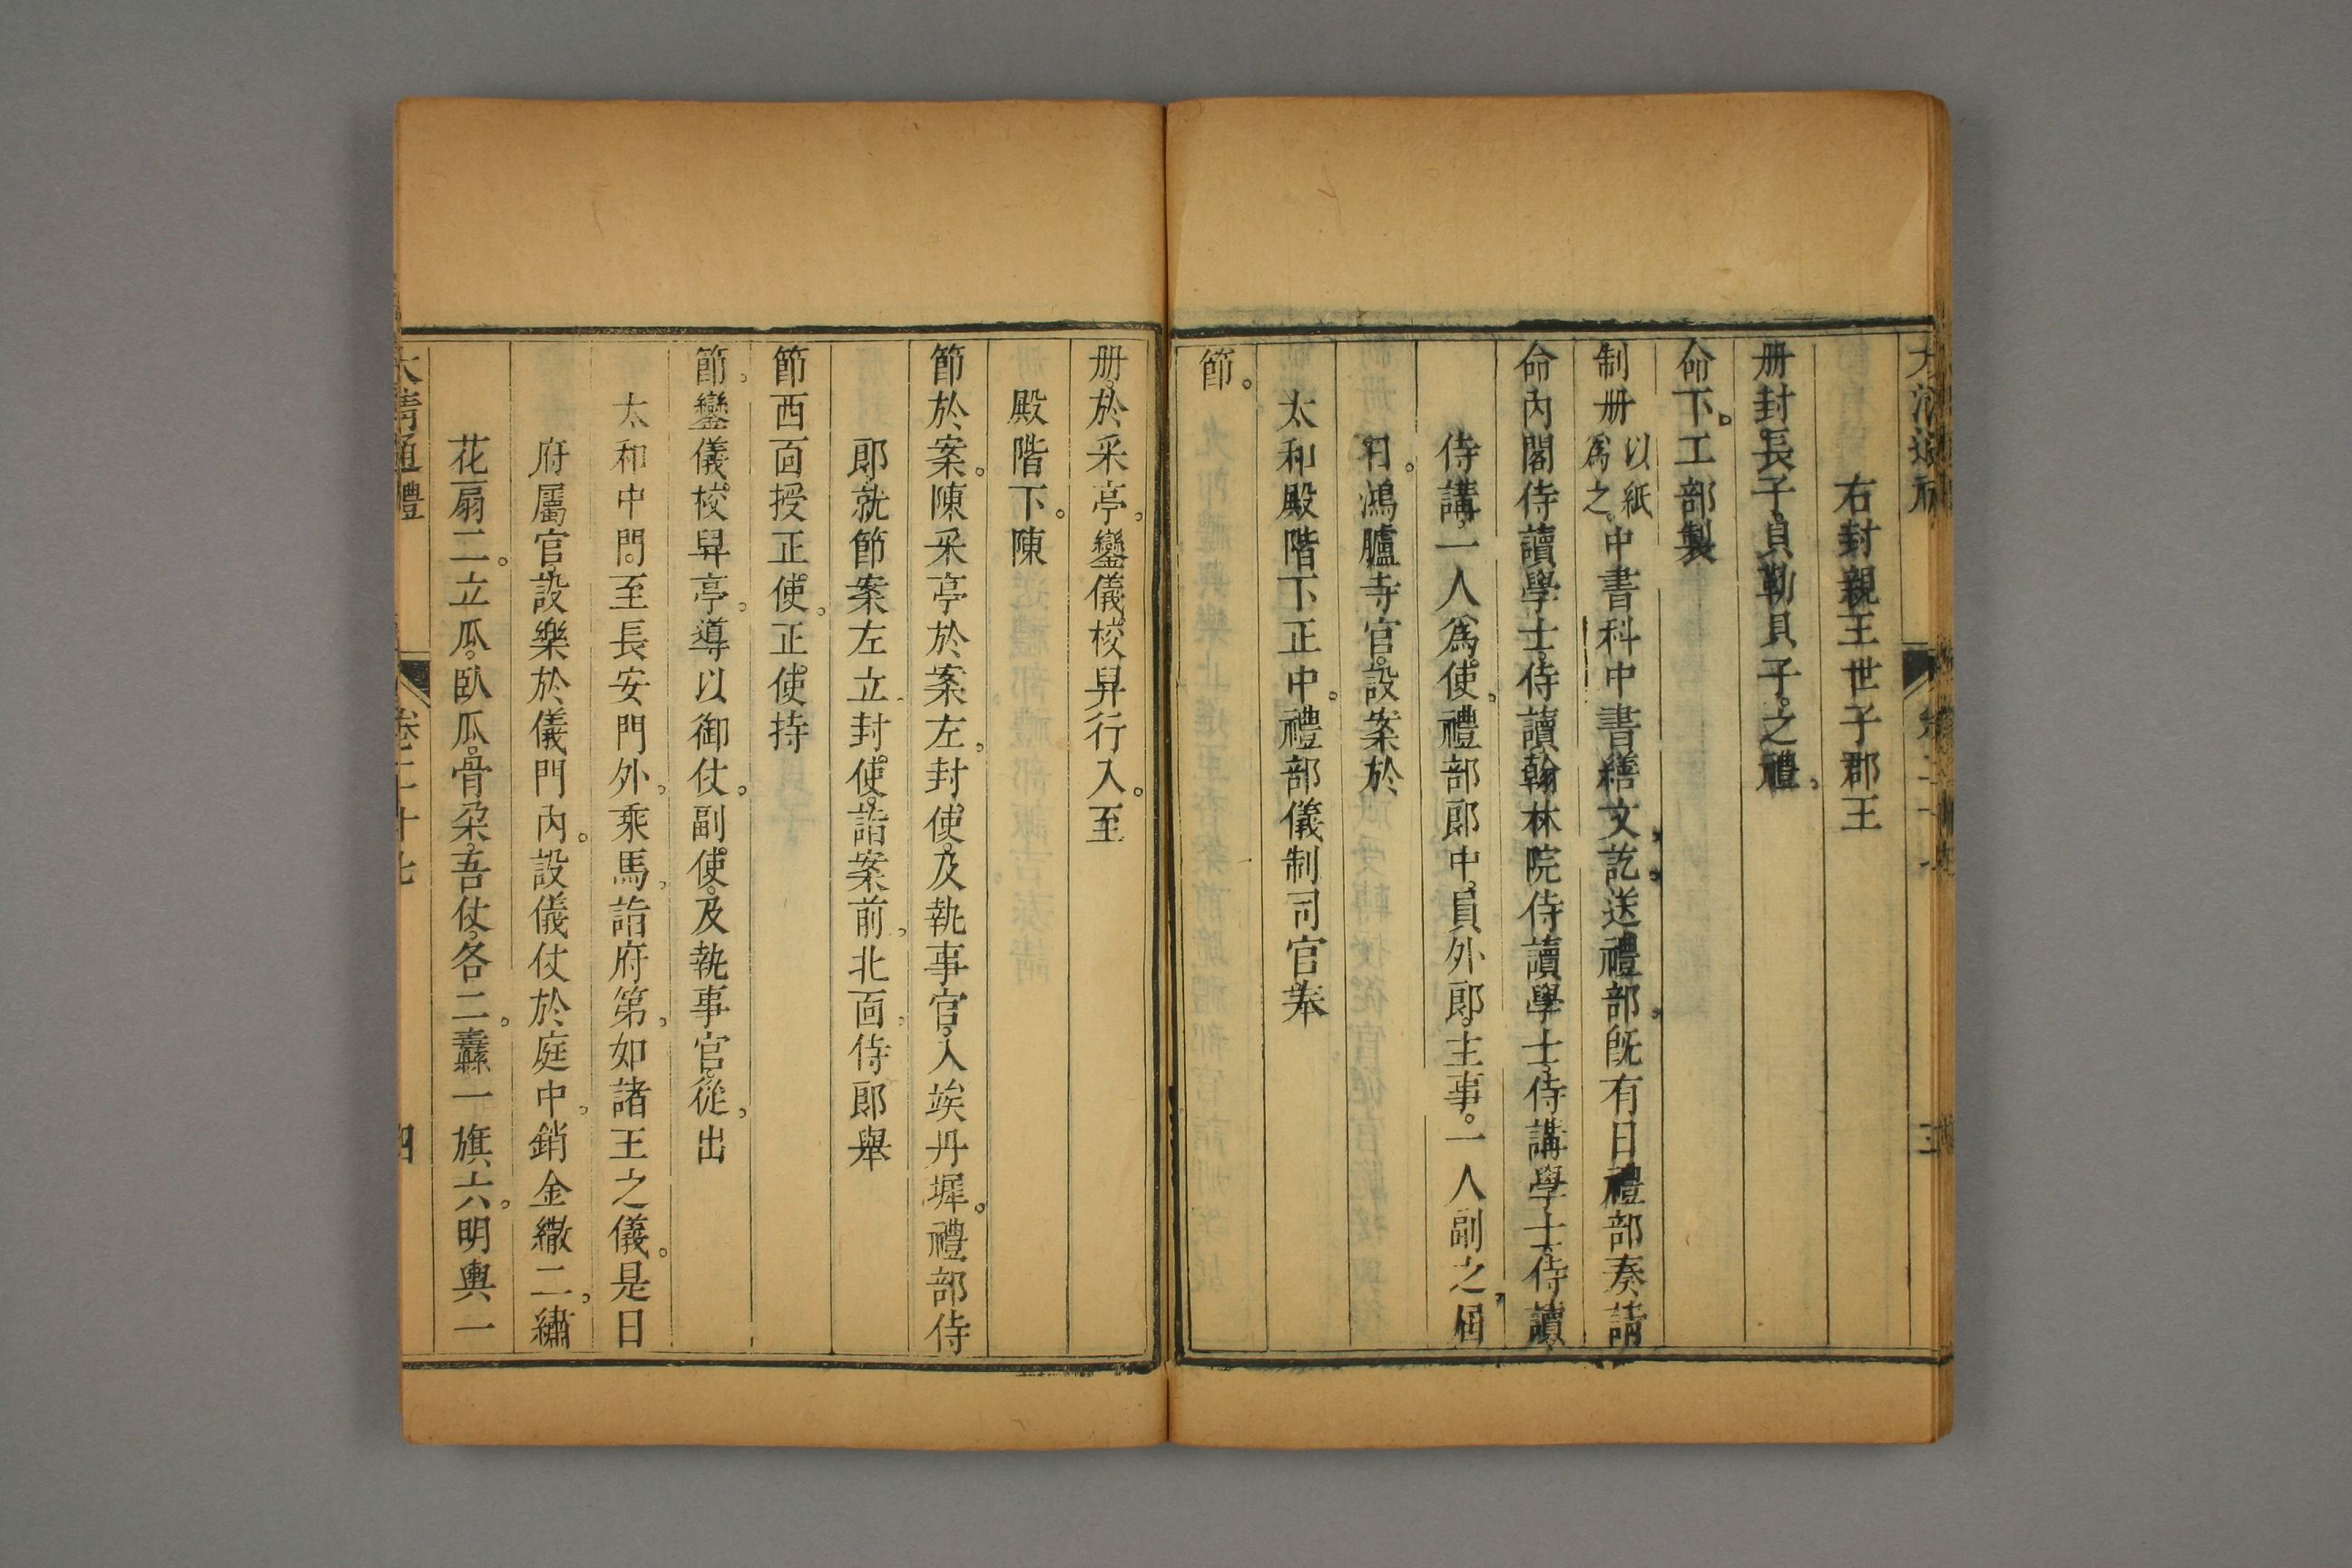 右封親王世子郡王
册封長子。貝勒貝子。之禮。
命下。工部製
制册以紙爲之。中書科中書繕文。訖。送禮部。既有日禮部奏請
命內閣侍讀學士。侍讀。翰林院侍讀學士。侍講學士。侍讀。
侍講。一人爲使。禮部郎中。員外郎。主事。一人副之。屆
日。鴻臚寺官。設案於
太和殿階下正中。禮部儀制司官。奉
節。
册。於采亭。鑾儀。校舁行入。至
殿階下。陳
節於案。陳采亭於案左。封使。及執事官。入竢丹墀。禮部侍
郎就節案左立。封使。詣案前。北面。侍郎舉
節西面授正使。正使持
節。鑾儀。校舁亭。導以御仗。副使。及執事官。從。出
太和中門。至長安門外。乘馬。詣府第。如諸王之儀。是日
府屬官。設樂於儀門內。設儀仗於庭中。銷金繖二。繡
花扇二。立瓜。臥瓜。骨朶。吾仗。各二。纛一旗六。明輿一
大清通禮 卷二十七 四